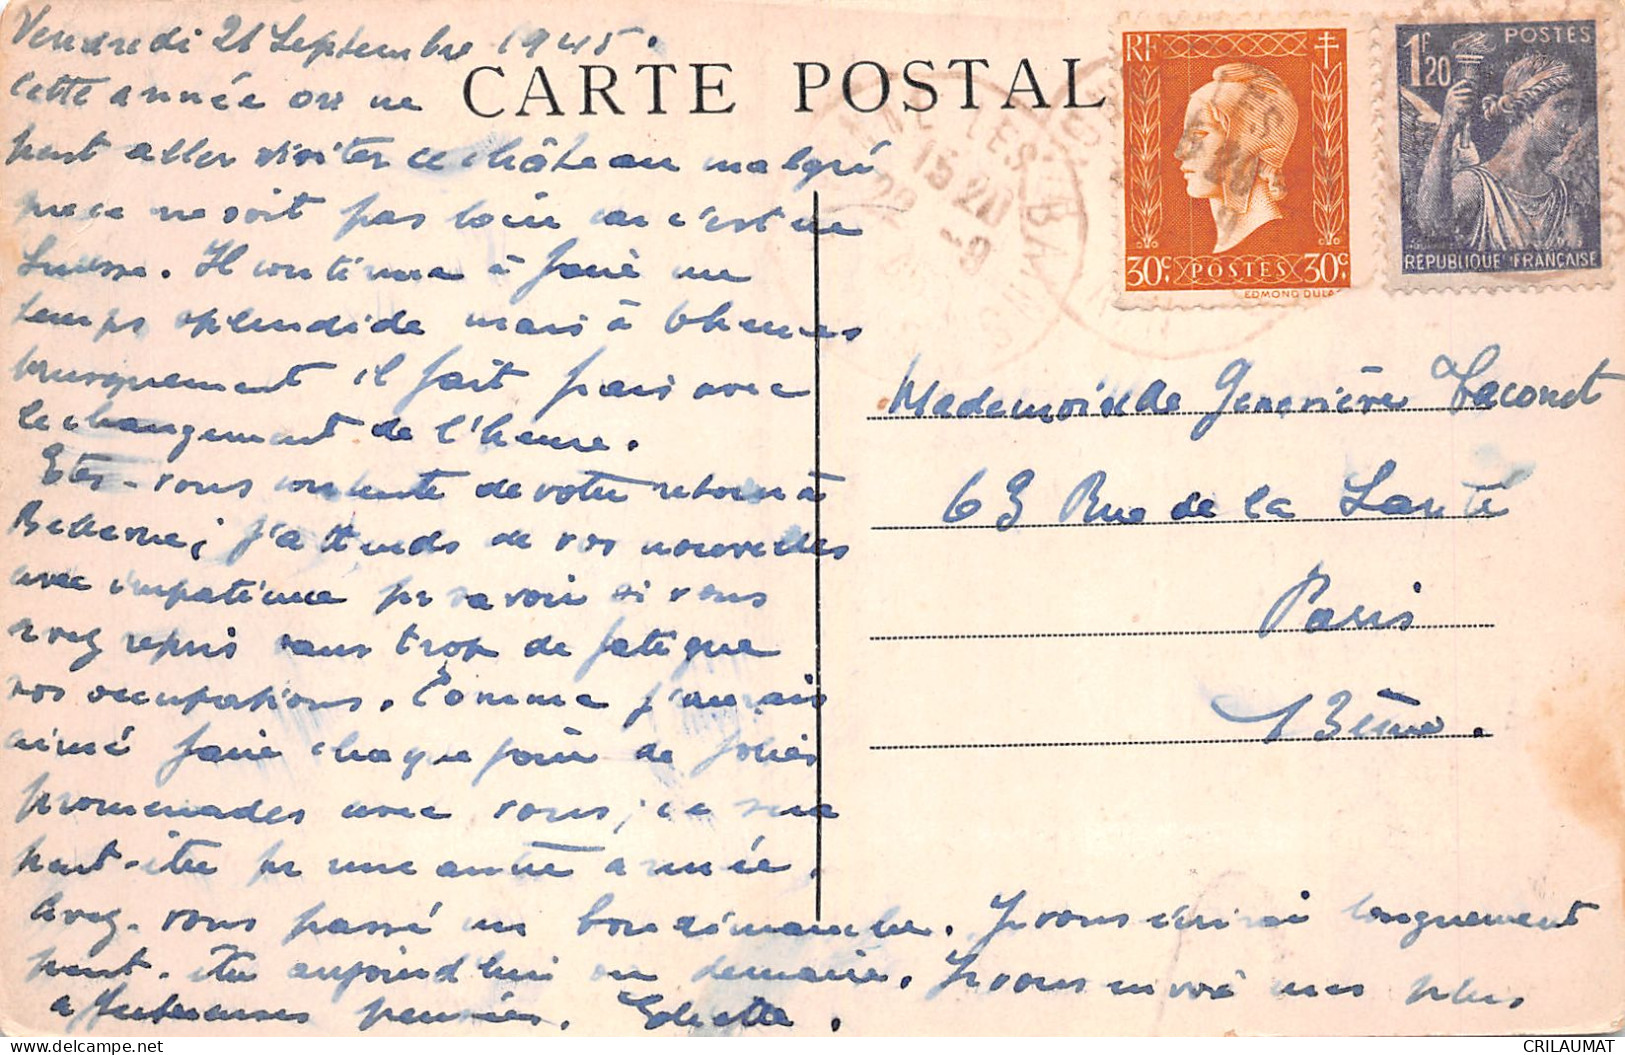 Vendredi 21 Septembre 1945.
CARTE POSTALE
cette année on ne
peut aller visiter ce château malgré
que ce ne soit pas loin car c'est en
Suisse. Il continue à faire un
temps splendide mais à Thônes
brusquement il fait frais avec
le changement de l'heure.
Etes-vous contente de votre retour à
j'attends de vos nouvelles
avec impatience pr savoir si vous
avez repris sans trop de fatigue
vos occupations. Comme j'aurais
aimé faire chaque jour de jolies
promenades avec vous; ce sera
peut-être pr une autre année.
Avez-vous passé un bon dimanche. Je vous écrirai longuement
peut-être aujourd'hui ou demain. Je vous envoie mes plus
affectueuses pensées.
RF
30c POSTES 30c
EDMOND DULAC
1F20
POSTES
RÉPUBLIQUE FRANÇAISE
LES-BAINS
15 20
22 -9
Mademoiselle Geneviève Taconet
63 Rue de la Santé
Paris
13ème.
CRILAUMAT